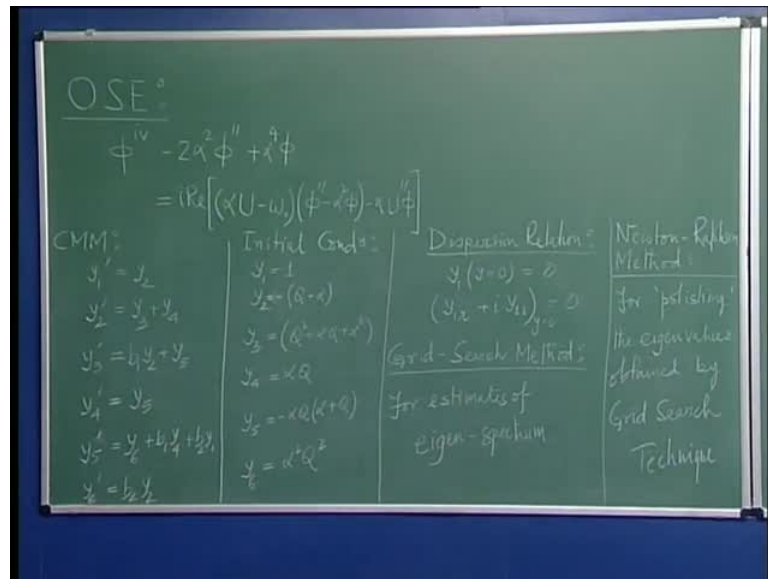 OSE:
ϕ^iv - 2α²ϕ'' + α⁴ϕ
= iRe[(αU - ω₀)(ϕ'' - α²ϕ) - αU''ϕ]
CMM:
y₁' = y₂
y₂' = y₃ + y₄
y₃' = b₁y₂ + y₅
y₄' = y₅
y₅' = y₆ + b₁y₄ + b₂y₁
y₆' = b₂y₂
Initial Condⁿ:
y₁ = 1
y₂ = -(Q+α)
y₃ = (Q² + αQ + α²)
y₄ = αQ
y₅ = -αQ(α+Q)
y₆ = α²Q²
Dispersion Relation:
y₁(y=0) = 0
(y₁r + i y₁i)y=0 = 0
Grid-Search Method:
for estimates of
eigen-spectrum
Newton-Raphson
Method:
for 'polishing'
the eigenvalues
obtained by
Grid Search
Technique